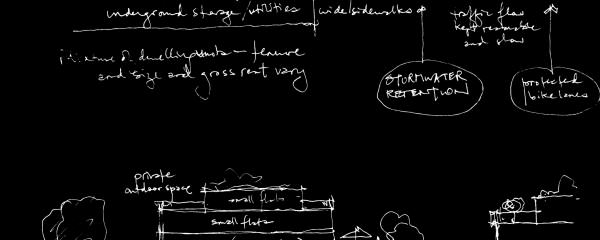 underground storage/utilities
wide sidewalks
traffic flow
kept reasonable
and slow
mixture of dwelling units — tenure
and size and gross rent vary
STORMWATER
RETENTION
protected
bike lanes
private
outdoor space
small flats
small flats